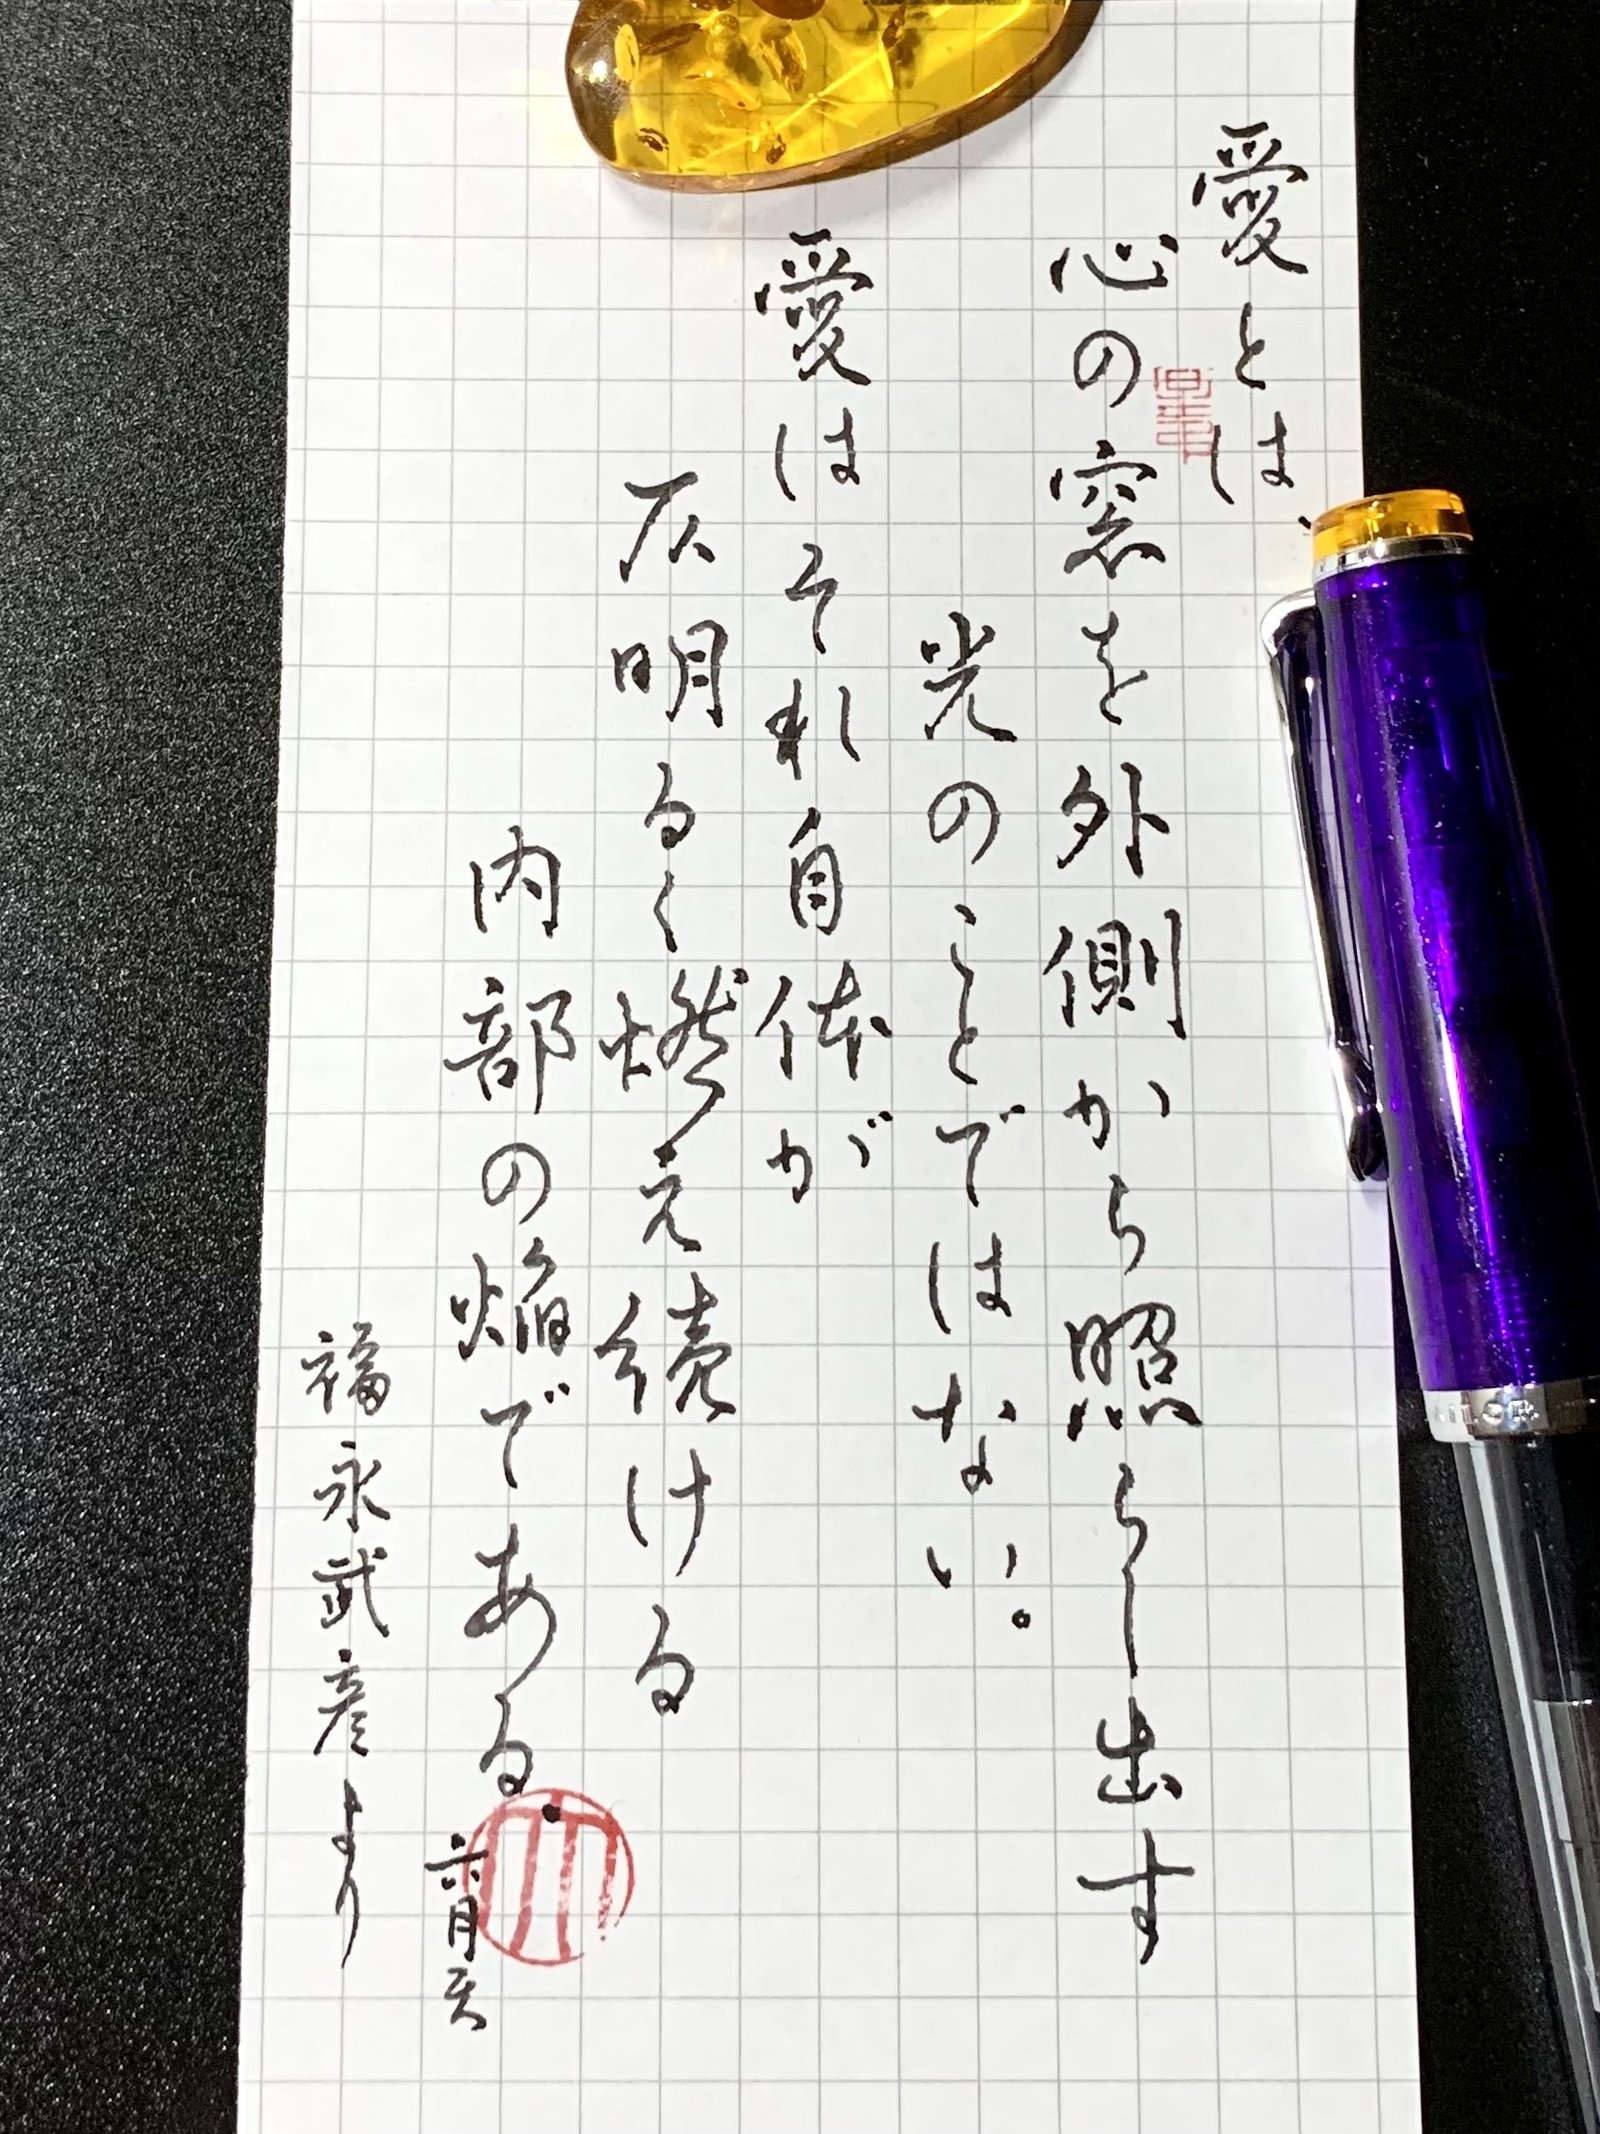 愛とは、
心の窓を外側から照らし出す
光のことではない。
愛はそれ自体が
仄明るく燃え続ける
内部の焔である。
六月天
福永武彦より